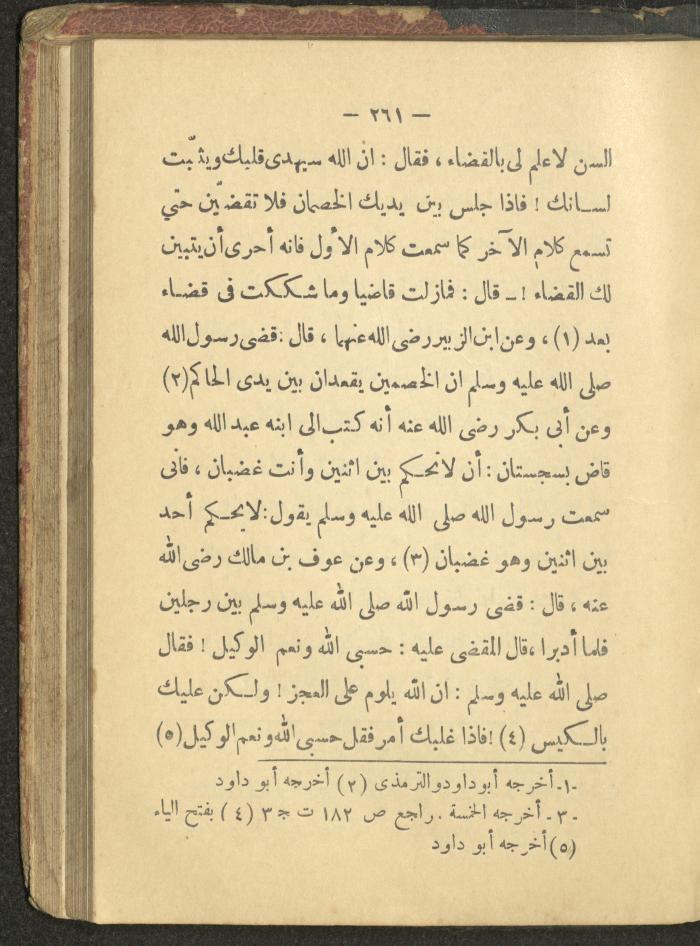 — ٢٦١ —
السن لا علم لى بالقضاء ، فقال : ان الله سيهدى قلبك ويثبّت
لسانك ! فاذا جلس بين يديك الخصمان فلا تقضيّن حتي
تسمع كلام الآخر كما سمعت كلام الأول فانه أحرى أن يتبين
لك القضاء ! ــ قال : فمازلت قاضيا وما شككت فى قضاء
بعد (١) ، وعن ابن الزبير رضى الله عنهما ، قال : قضى رسول الله
صلى الله عليه وسلم ان الخصمين يقعدان بين يدى الحاكم (٢)
وعن أبى بكر رضى الله عنه أنه كتب الى ابنه عبد الله وهو
قاض بسجستان : أن لاتحكم بين اثنين وأنت غضبان ، فانى
سمعت رسول الله صلى الله عليه وسلم يقول : لايحكم أحد
بين اثنين وهو غضبان (٣) ، وعن عوف بن مالك رضى الله
عنه ، قال : قضى رسول الله صلى الله عليه وسلم بين رجلين
فلما أدبرا ، قال المقضى عليه : حسبى الله ونعم الوكيل ! فقال
صلى الله عليه وسلم : ان الله يلوم على العجز ! ولكن عليك
بالكيس (٤) ! فاذا غلبك أمر فقل حسبى الله ونعم الوكيل (٥)
-١- أخرجه أبو داود والترمذى (٢) أخرجه أبو داود
-٣- أخرجه الخمسة . راجع ص ١٨٢ ت ج ٣ (٤) بفتح الياء
(٥) أخرجه أبو داود